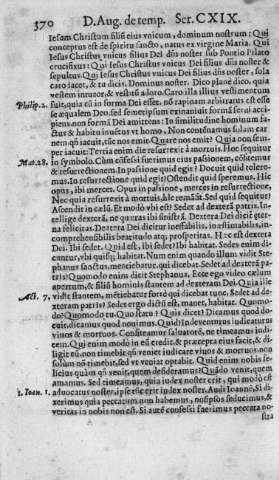 370 D. Aug. de temp. Ser. CXIX.
Iesum Christum filiũ eius vnicum, dominum nostrum: Qui
conceptus est de spiritu sancto, natus ex virgine Maria. Qui
Iesus Christus vnicus filius Dei dñs noster sub Pontio Pilato
crucifixus: Qui Iesus Christus vnicus Dei filius dñs noster &
sepultus. Qui Iesus Christus vnicus Dei filius dñs noster, sola
caro iacet, & tu dicis, Dominus noster. Dico plane dico, quia
vestem intueor, & vestitũ adoro. Caro illa illius vestimentum
Philip. 2. fuit, quia cũ in forma Dei esset, nõ rapinam arbitratus est esse
se æqualem Deo, sed semetipsum exinaniuit formã serui acci
piens non formã Dei amittens: In similitudine hominum fa-
ctus & habitu inuẽtus vt homo. Non contẽnamus solam car
nem qñ iacuit, tũc nos emit. Quare nos emit? Quia non sem-
per iacuit: Tertia enim die resurrexit à mortuis. Hoc sequitur
Mat. 28. in symbolo. Cum cõfessi fuerimus eius passionem, cõfitemur
& resurrectionem. In passione quid egit? Docuit quid tolere-
mus. In resurrectione quid egit? Ostendit quid speremus. Hic
opus, ibi merces. Opus in passione, merces in resurrectione.
Nec quia resurrexit à mortuis, hîc remãsit. Sed quid sequitur?
Ascendit in cœlũ. Et modò vbi est? Sedet ad dexterã patris. In-
tellige dexterã, ne quæras ibi sinistrã. Dextera Dei dicit̃ æter-
na felicitas. Dextera Dei dicitur ineffabilis, inæstimabilis, in-
comprehensibilis beatitudo atq; prosperitas. Hæc est dextera
Dei. Ibi sedet. Quid est, ibi sedet? Ibi habitat. Sedes enim di-
cuntur, vbi quisq; habitat. Num enim quando illum vidit Ste-
phanus sanctus, mentiebatur, qui dicebat, Sedet ad dexterã pa-
tris? Quomodo enim dicit Stephanus. Ecce ego video cœlum
apertum, & filiũ hominis stantem ad dexteram Dei. Quia ille
Act. 7. vidit stantem, mẽtiebatur forrè qui dicebat tunc, Sedet ad de-
xteram patris? Sedet ergo dictũ est, manet, habitat. Quomo-
do? Quomodo tu. Quo statu? Quis dicet? Dicamus quod do-
cuit, dicamus quod nouimus. Quid? Inde venturus iudicatur9
viuos & mortuos. Cõfiteamur saluatorẽ, ne timeamus iudi-
cem. Qui enim modò in eũ credit, & præcepta eius facit, & di-
ligit eũ, non timebit qñ veniet iudicare viuos & mortuos: non
solum nõ timebit, sed vt veniat optabit. Quid enim nobis fe-
licius quàm qñ venit, quem desideramus? Quãdo venit, quem
amamus. Sed timeamus, quia iudex noster erit, qui modò est
1. Ioan. 1. aduocatus noster, ipse tũc erit index noster. Audi Ioannẽ, Si di-
xerimus quia peccatum non habemus, nosipsos seducimus, &
veritas in nobis non est. Si autẽ confessi fuerimus peccata no-
stra